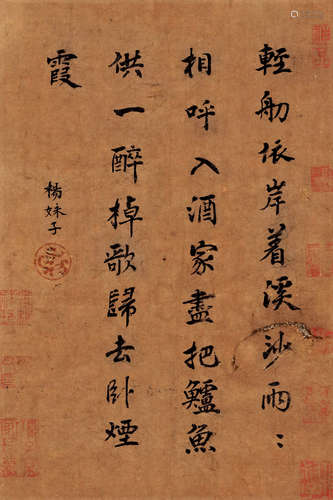 輕舠依岸着溪沙雨〻
相呼入酒家盡把鱸魚
供一醉棹歌歸去卧煙
霞
楊妹子